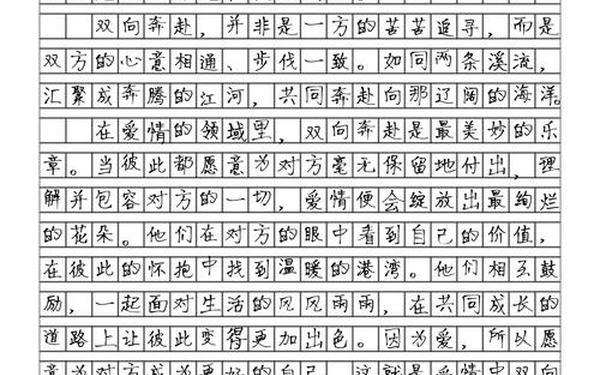 双向奔赴，并非是一方的苦苦追寻，而是
双方的心意相通、步伐一致。如同两条溪流，
汇聚成奔腾的江河，共同奔赴向那辽阔的海洋。
在爱情的领域里，双向奔赴是最美妙的乐
章。当彼此都愿意为对方毫无保留地付出，理
解并包容对方的一切，爱情便会绽放出最绚烂
的花朵。他们在对方的眼中看到自己的价值，
在彼此的怀抱中找到温暖的港湾。他们相互鼓
励，一起面对生活的风风雨雨，在共同成长的
道路上让彼此变得更加出色。因为爱，所以愿
意为对方成为更好的自己，这就是爱情中双向